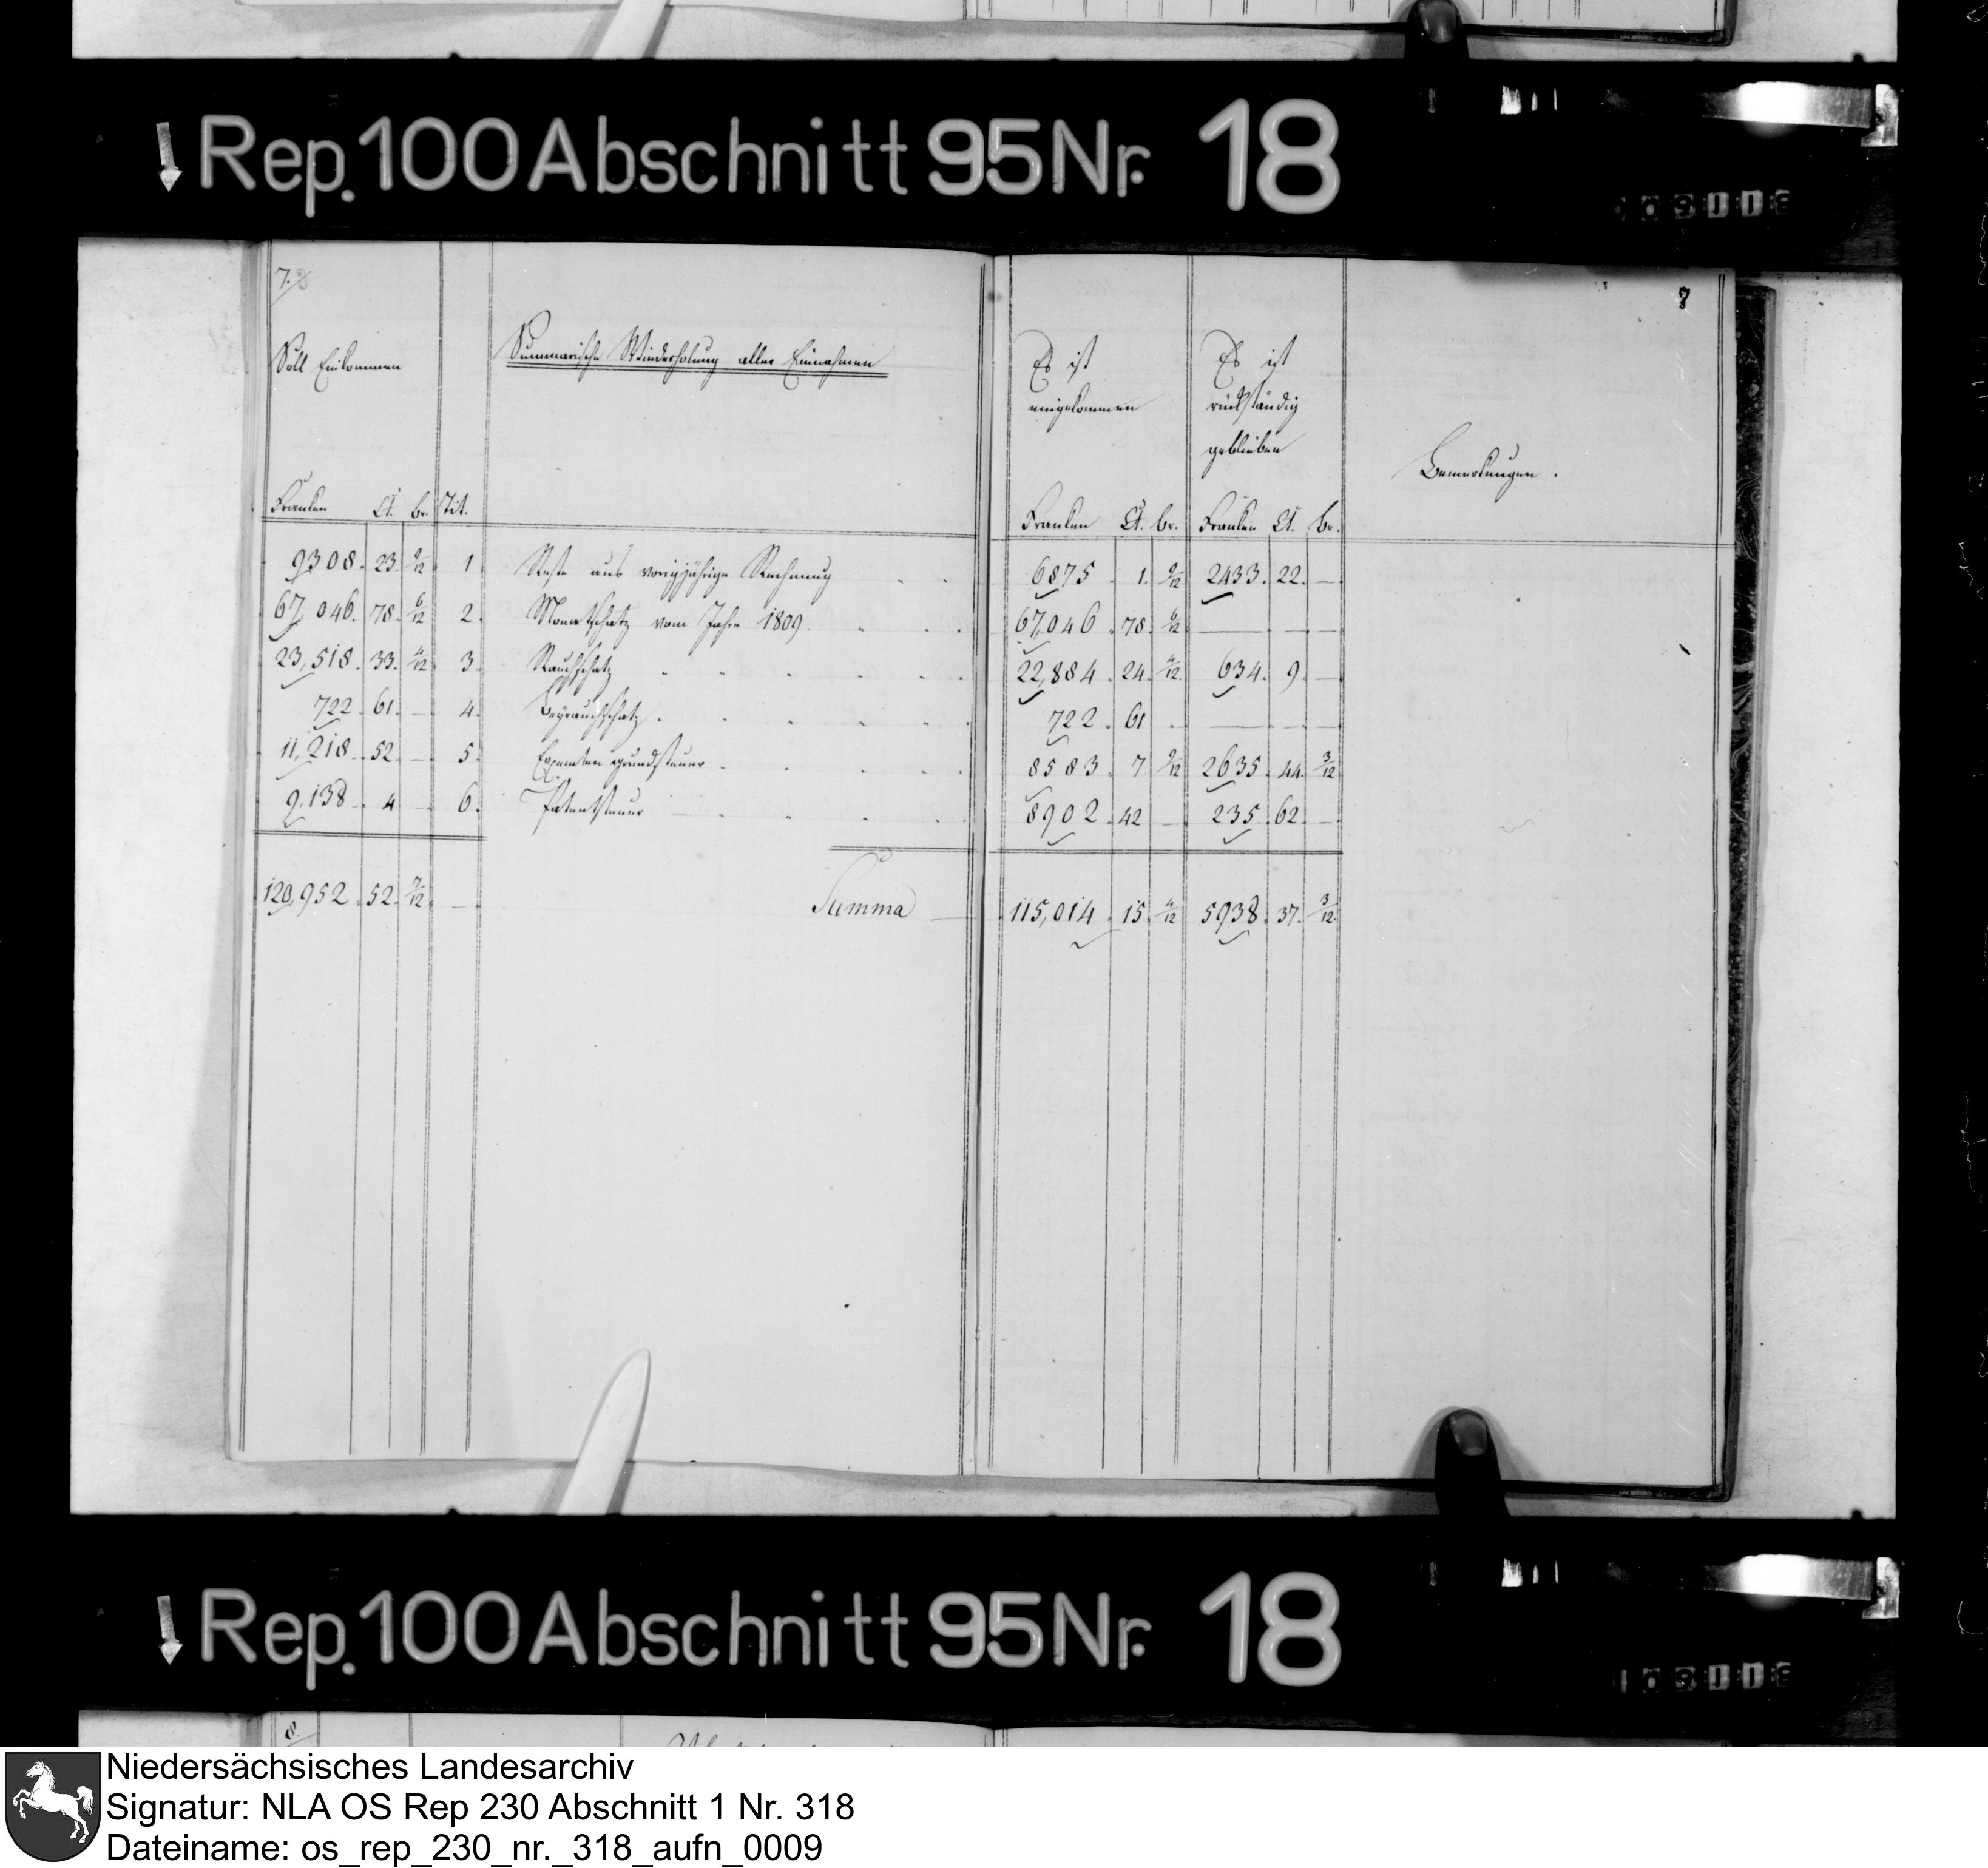 Rep. 100 Abschnitt 95 Nr. 18
7.
8
Soll Einkommen
Summarische Wiederholung aller Einnahmen
Es ist
eingekommen
Es ist
rückständig
geblieben
Bemerkungen.
Franken Ct. br. Tit.
Franken Ct. br. Franken Ct. br.
9308. 23. 9/12 1 Reste aus vorigjährige Rechnung 6875 1. 9/12 2433. 22. —
67,046. 78. 6/12 2. Monatschatz vom Jahre 1809. 67,046 78. 6/12 — — —
23,518. 33. 4/12 3. Rauchschatz 22,884 24. 4/12 634. 9. —
722. 61. — 4. Beyrauchschatz. 722. 61 — — —
11,218. 52. — 5. Exemten grundsteuer 8583. 7. 9/12 2635. 44. 3/12
9.138. 4 — 6. Patentsteuer 8902. 42 — 235. 62. —
120,952. 52. 7/12 — Summa — 115,014. 15. 4/12 5938. 37. 3/12
Rep. 100 Abschnitt 95 Nr. 18
8.
Niedersächsisches Landesarchiv
Signatur: NLA OS Rep 230 Abschnitt 1 Nr. 318
Dateiname: os_rep_230_nr._318_aufn_0009